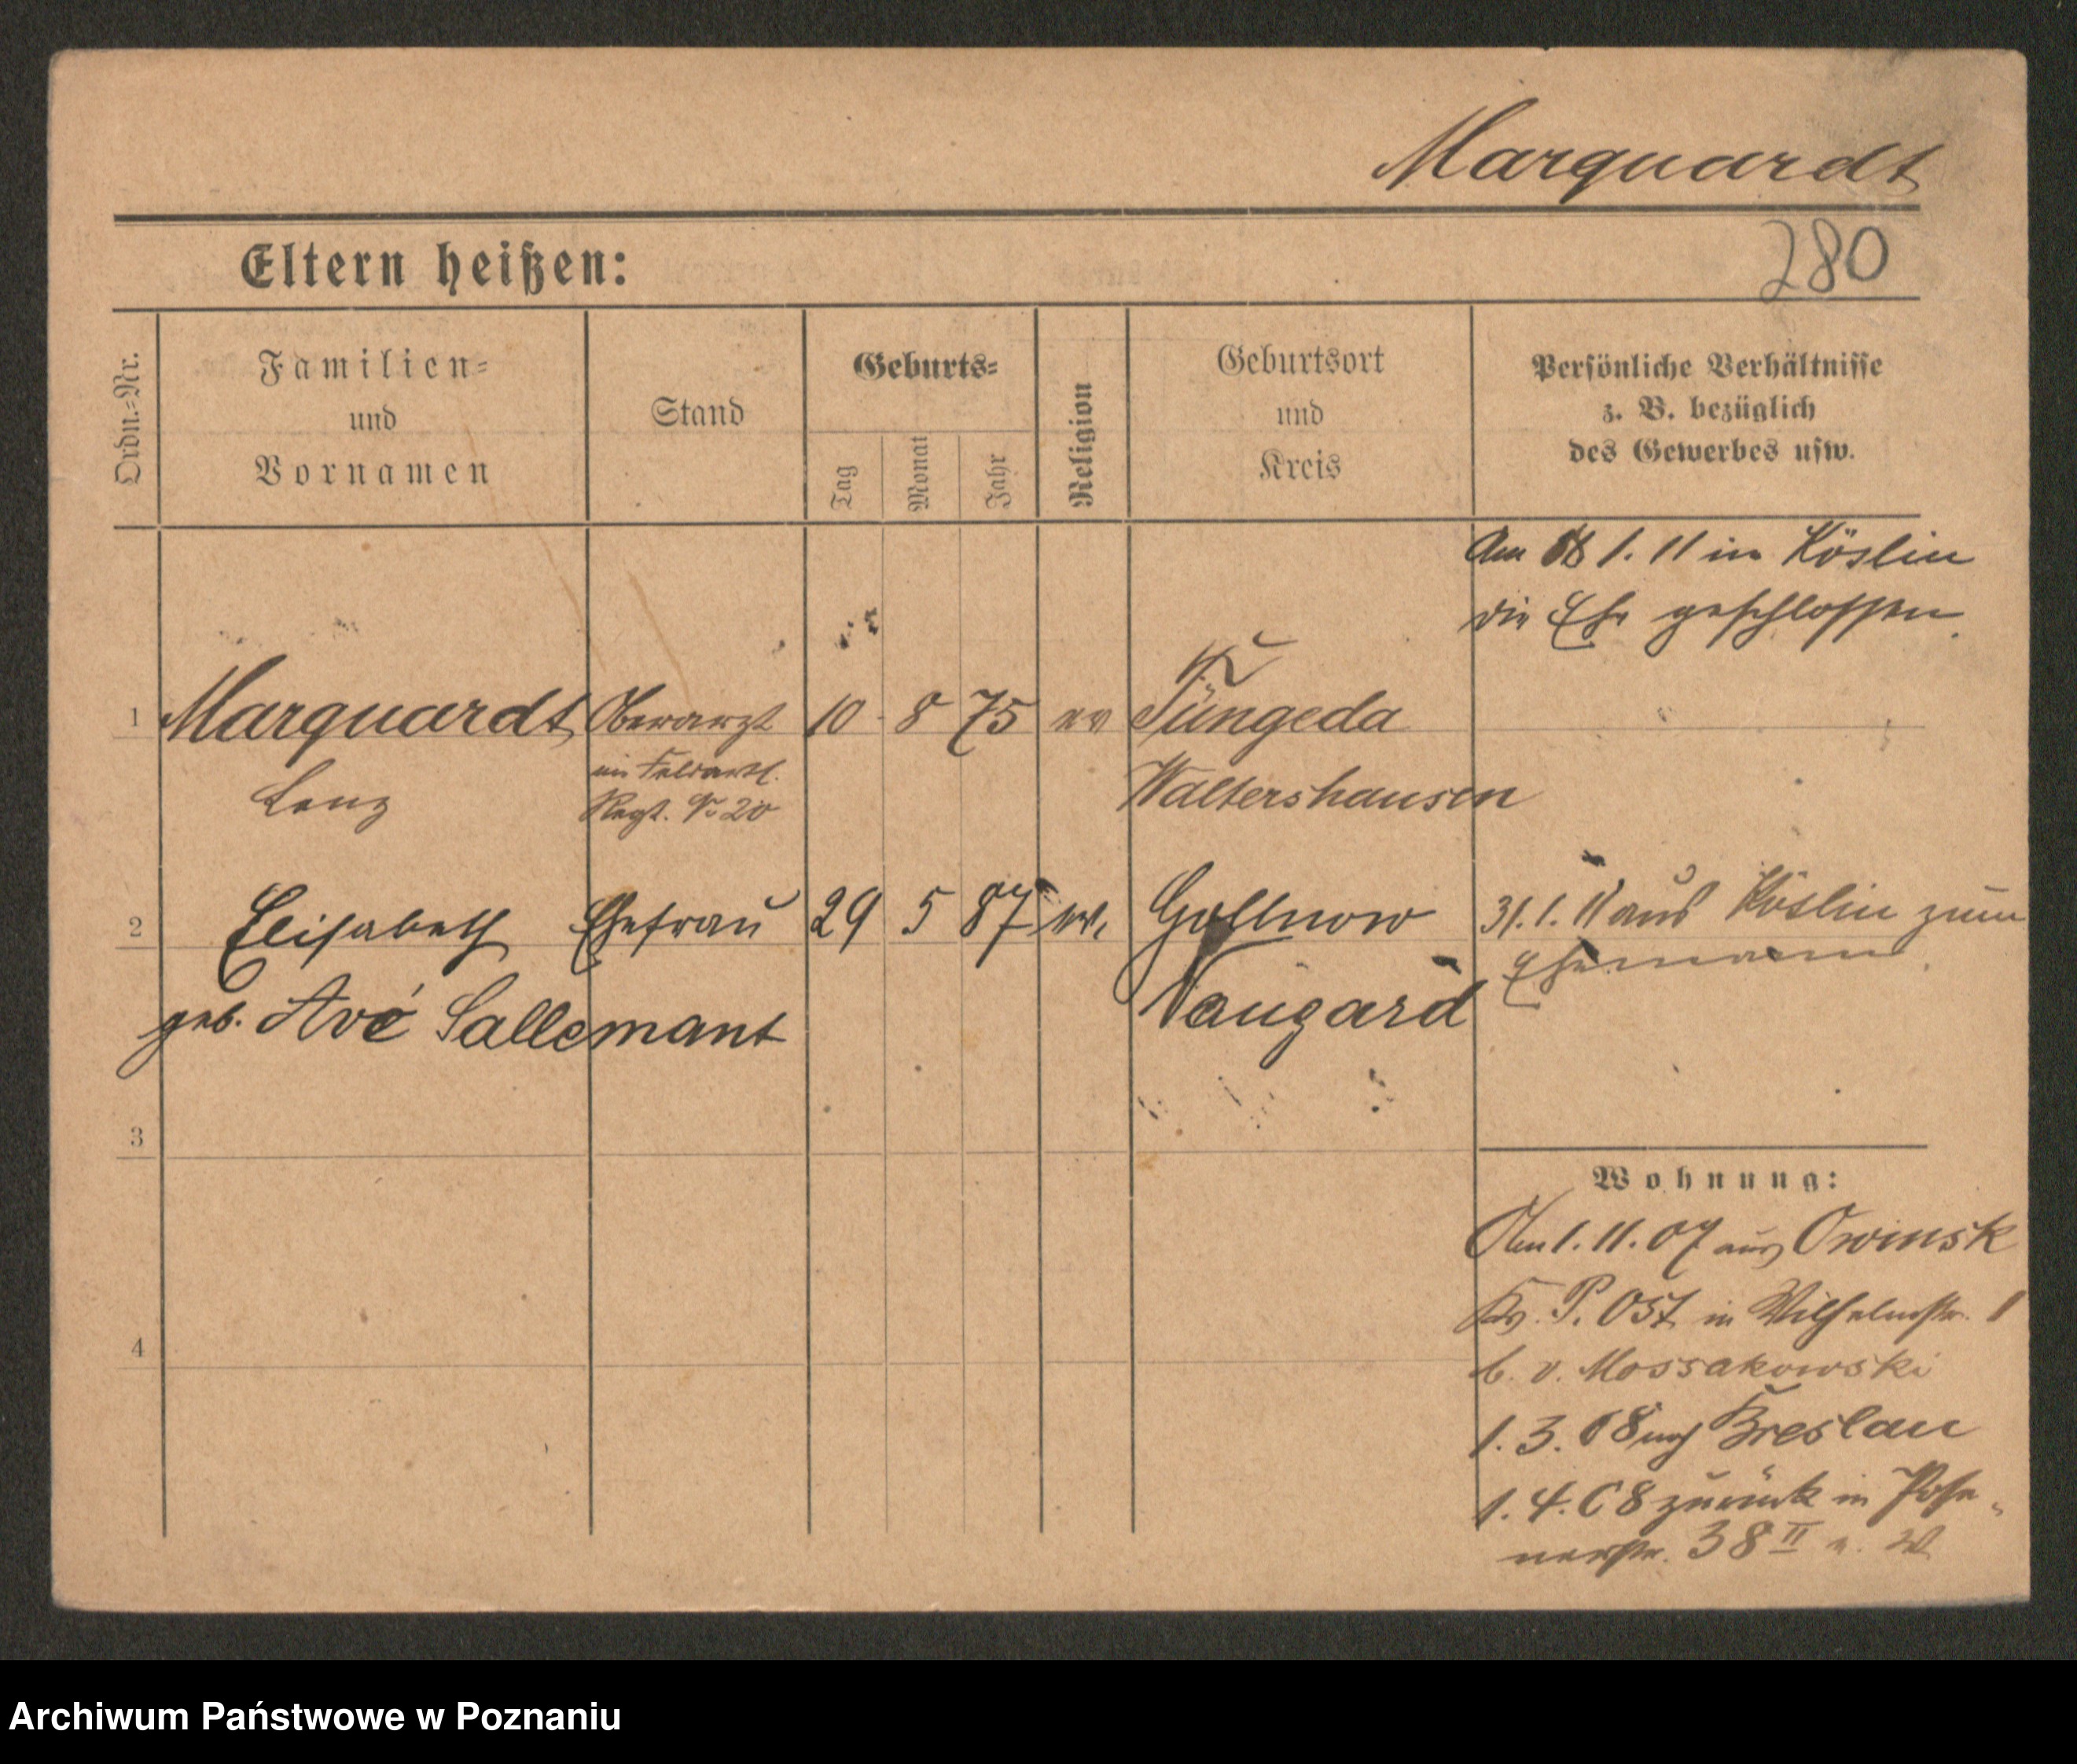 Marquardt
280
Eltern heißen:
Ordn.-Nr.
Familien-
und
Vornamen
Stand
Geburts-
Tag
Monat
Jahr
Religion
Geburtsort
und
Kreis
Persönliche Verhältnisse
z. B. bezüglich
des Gewerbes usw.
Am 1. 11 in Köslin
die Ehe geschlossen.
1 Marquardt Oberarzt 10 8 75 ev Tüngeda
im Feldartl.
Regt. No 20
Waltershausen
2 Elisabeth Ehefrau 29 5 87 ev. Gollnow
geb. Avé Lallemant
Naugard
31. 1. 11 aus Köslin zum
Ehemann.
3
4
Wohnung:
Am 1. 11. 07 aus Owinsk
Krs. P. Ost in Wilhelmstr. 1
b. v. Mossakowski
1. 3. 08 nach Breslau
1. 4. 08 zurück in Pose-
nerstr. 38 II
Archiwum Państwowe w Poznaniu